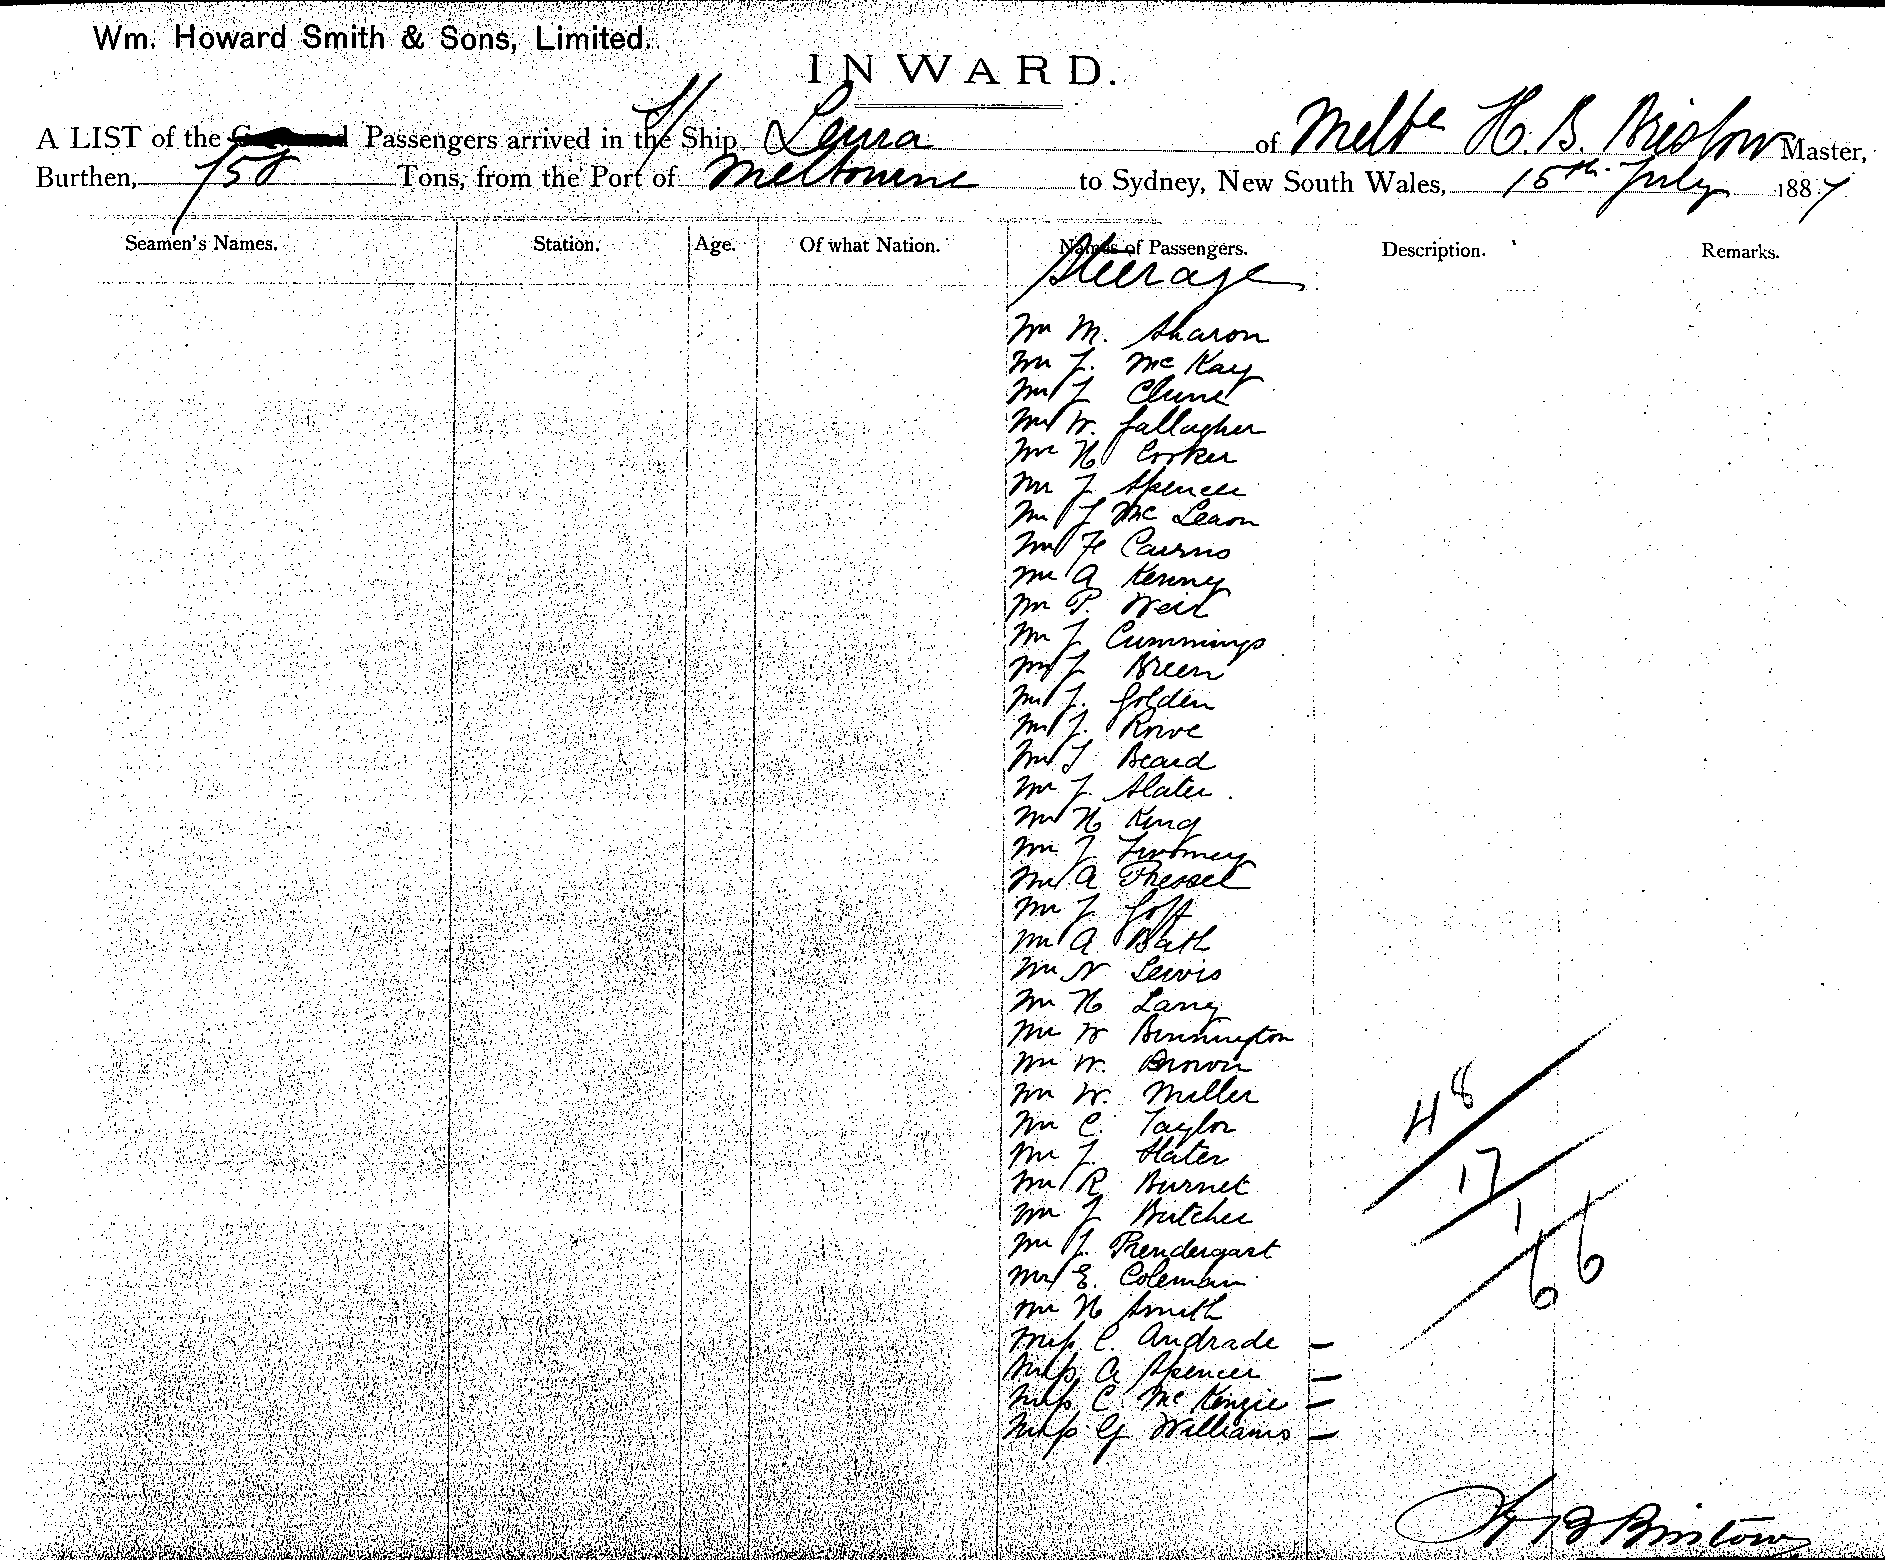 Wm. Howard Smith & Sons, Limited.
INWARD.
A LIST of the Passengers arrived in the Ship Leura of Melbe H. B. Bristow Master,
Burthen, 758 Tons, from the Port of Melbourne to Sydney, New South Wales, 15th July 1887
Seamen's Names. Station. Age. Of what Nation. Names of Passengers. Description. Remarks.
Steerage
Mr M. Sharon
Mr J. McKay
Mr J Clune
Mr W. Gallagher
Mr H Corker
Mr J Spencer
Mr J McLearn
Mr F Cairns
Mr A Kenny
Mr P. Weir
Mr J Cummings
Mr J Breen
Mr J. Golden
Mr J. Rowe
Mr J Beard
Mr J. Slater
Mr H King
Mr J Twomey
Mr A Thessel
Mr J Goff
Mr A Bath
Mr N Lewis
Mr H Lany
Mr W Bennington
Mr W. Brown
Mr W. Miller
Mr C. Taylor
Mr J. Slater
Mr R Burnet
Mr J Butcher
Mr J. Prendergast
Mr E. Coleman
Mr H Smith
Miss C. Andrade —
Miss A Spencer —
Miss C. McKenzie —
Miss G Williams —
48
17
1
66
H B Bristow